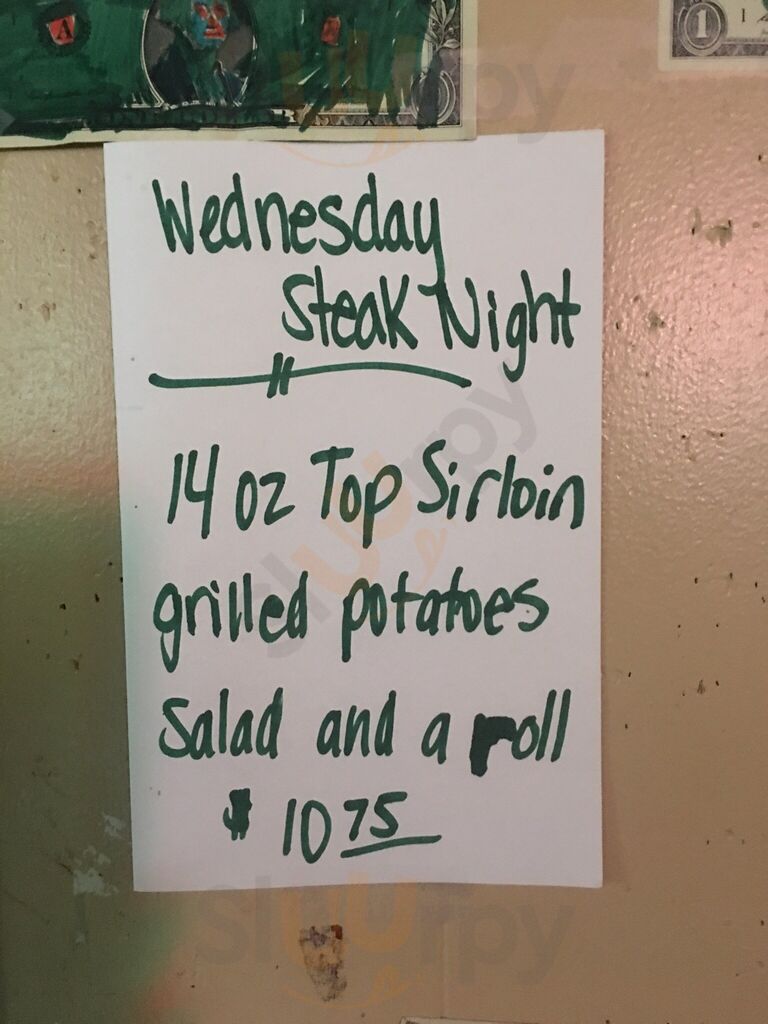 Wednesday
Steak Night
14 oz Top Sirloin
grilled potatoes
Salad and a roll
$ 10 75
sluurpy
sluurpy
1
A